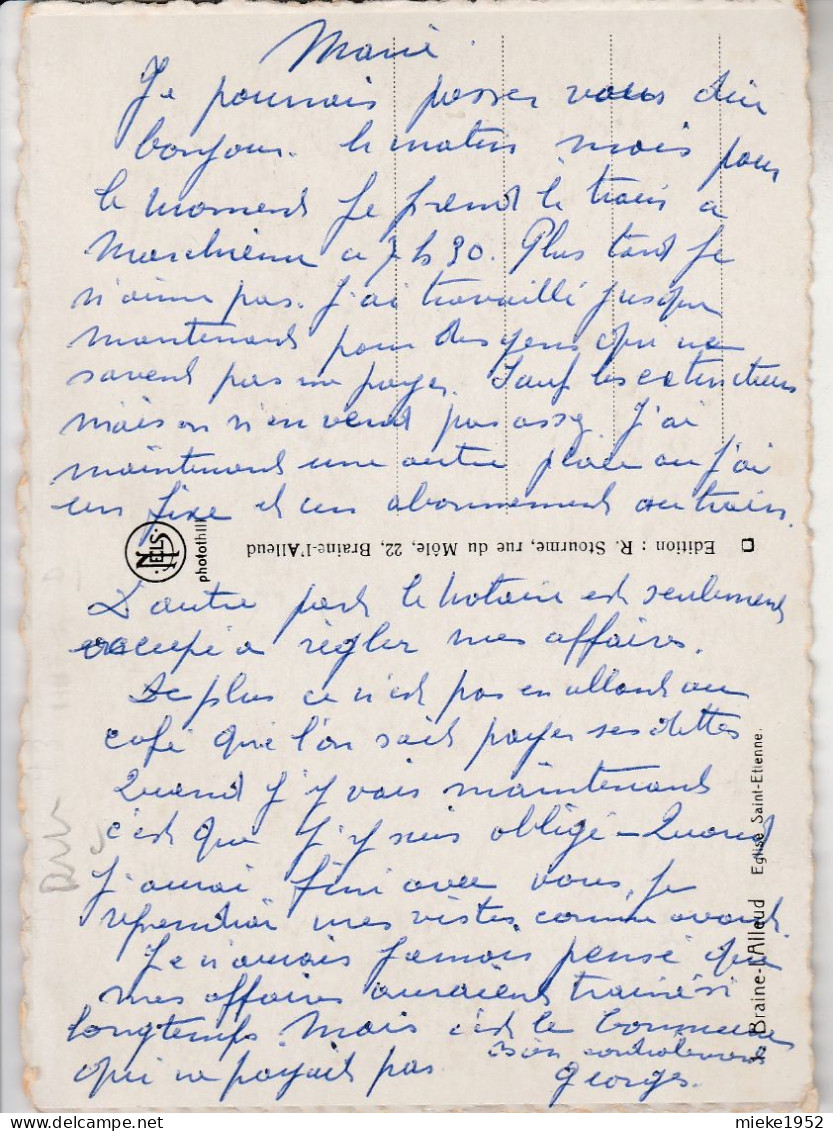 Marie.
Je pourrais passer vous dire
bonjour. le matin mais pour
le moment Je prend le train a
Marchienne a 7 h 30. Plus tard Je
n'aime pas. J'ai travaillé jusque
maintenant pour des gens qui ne
savent pas me payer. Sauf les extincteurs
mais on n'en vend pas assez J'ai
maintenant une autre place ou j'ai
un fixe et un abonnement au train.
NELS
photothill
Edition : R. Stourme, rue du Môle, 22, Braine-l'Alleud
D'autre part le Notaire est seulement
occupé a régler mes affaires.
De plus ce n'est pas en allant au
café que l'on sait payer ses dettes
Quand J'y vais maintenant
c'est que J'y suis obligé - Quand
J'aurai fini avec vous, je
reprendrai mes visites comme avant.
Je n'aurais Jamais pensé que
mes affaires auraient trainé si
longtemps. Mais c'est le
qui ne payait pas
Bien cordialement
Georges.
Braine-l'Alleud Eglise Saint-Etienne.
mieke1952